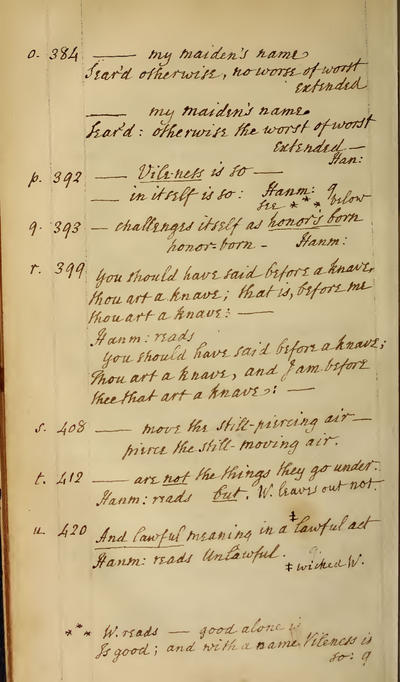 o. 384 —— my maiden's name
Sear'd otherwise, no worse of worst
extended
—— my maiden's name
Sear'd: otherwise the worst of worst
extended —
Han:
p. 392 —— Vile-ness is so ——
—— in it self is so: Hanm: q
see *** below
q. 393 — challenges itself as honor's born
honor-born - Hanm:
r. 399 you should have said before a knave,
thou art a knave; that is, before me
thou art a knave: ——
Hanm: reads
you should have said before a knave;
Thou art a knave, and I am before
thee that art a knave: ——
s. 408 —— move the still-piercing air —
pierce the still-moving air.
t. 412 —— are not the things they go under.
Hanm: reads but. W. leaves out not.
u. 420 And lawful meaning in a ‡ lawful act
Hanm: reads Unlawful.
‡ wicked W.
*** W. reads — good alone is
Is good; and with a name Vileness is
so: q